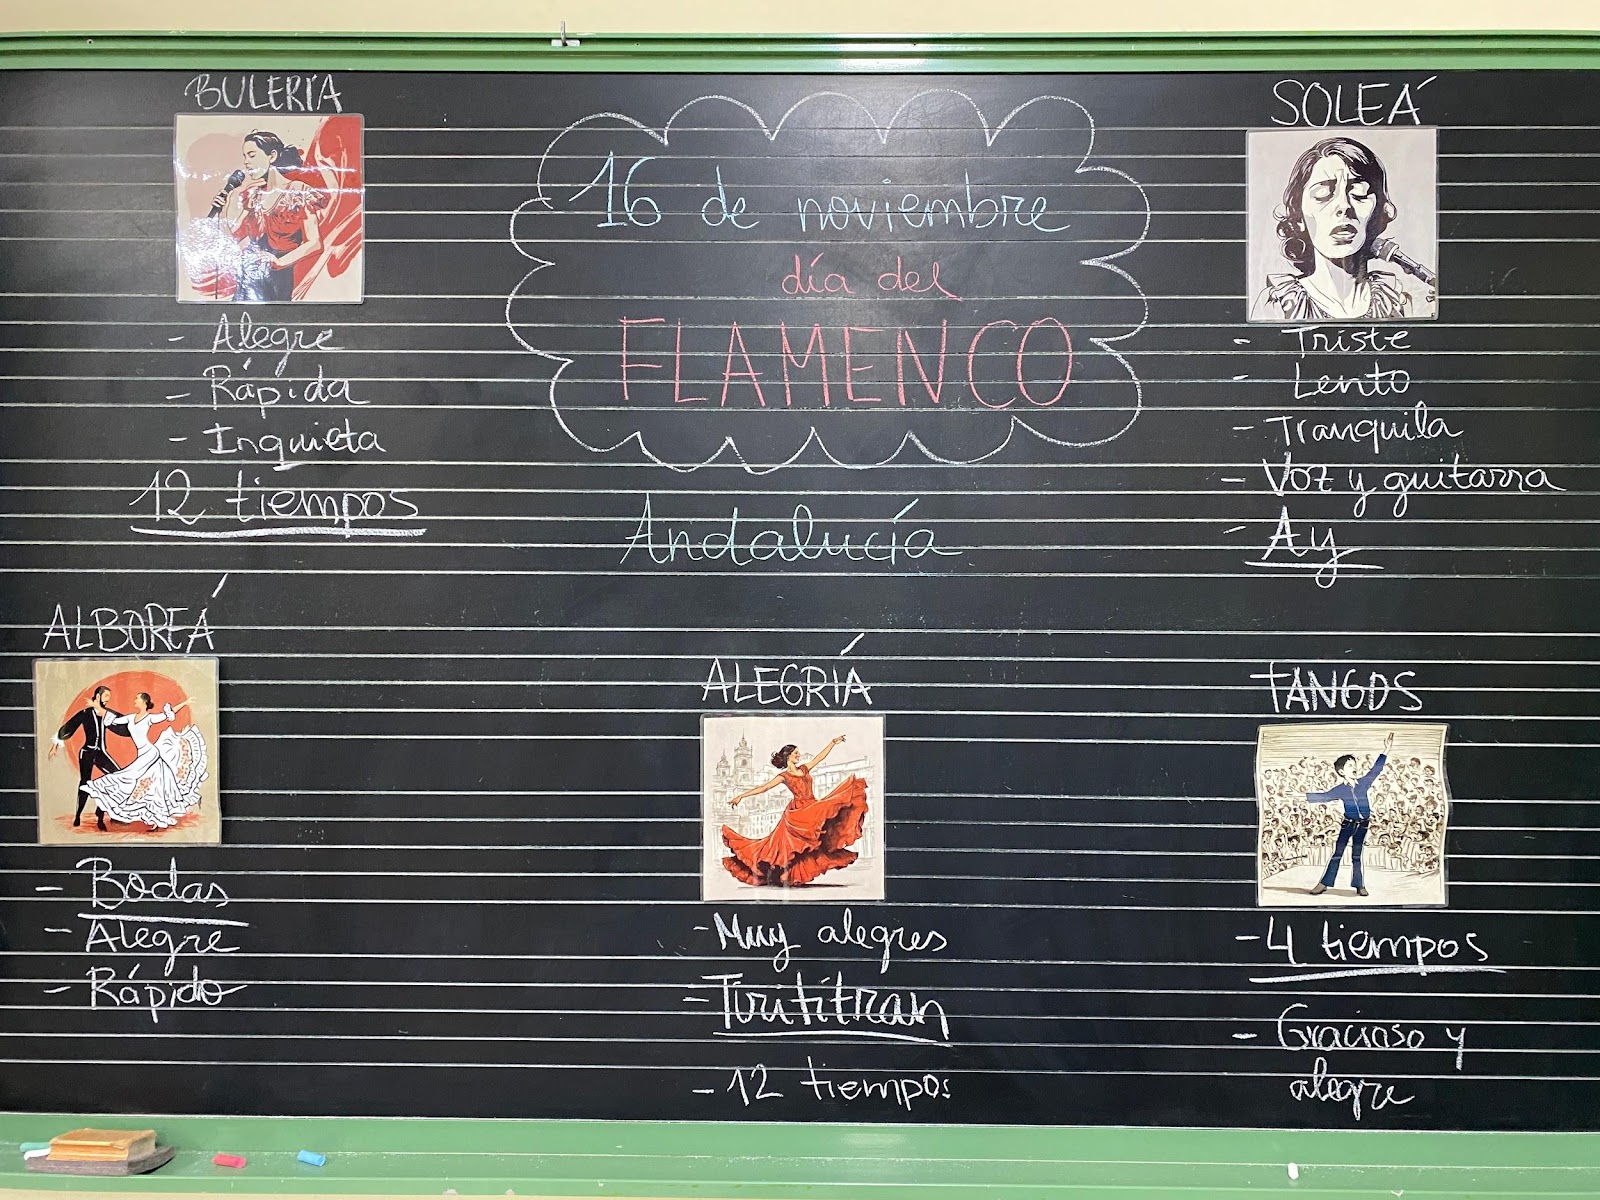 BULERÍA
- Alegre
- Rápida
- Inquieta
12 tiempos
16 de noviembre
día del
FLAMENCO
Andalucía
SOLEÁ
- Triste
- Lento
- Tranquila
- Voz y guitarra
- Ay
ALBOREÁ
- Bodas
- Alegre
- Rápido
ALEGRIÁ
- Muy alegres
- Tirititran
- 12 tiempos
TANGOS
- 4 tiempos
- Gracioso y
alegre